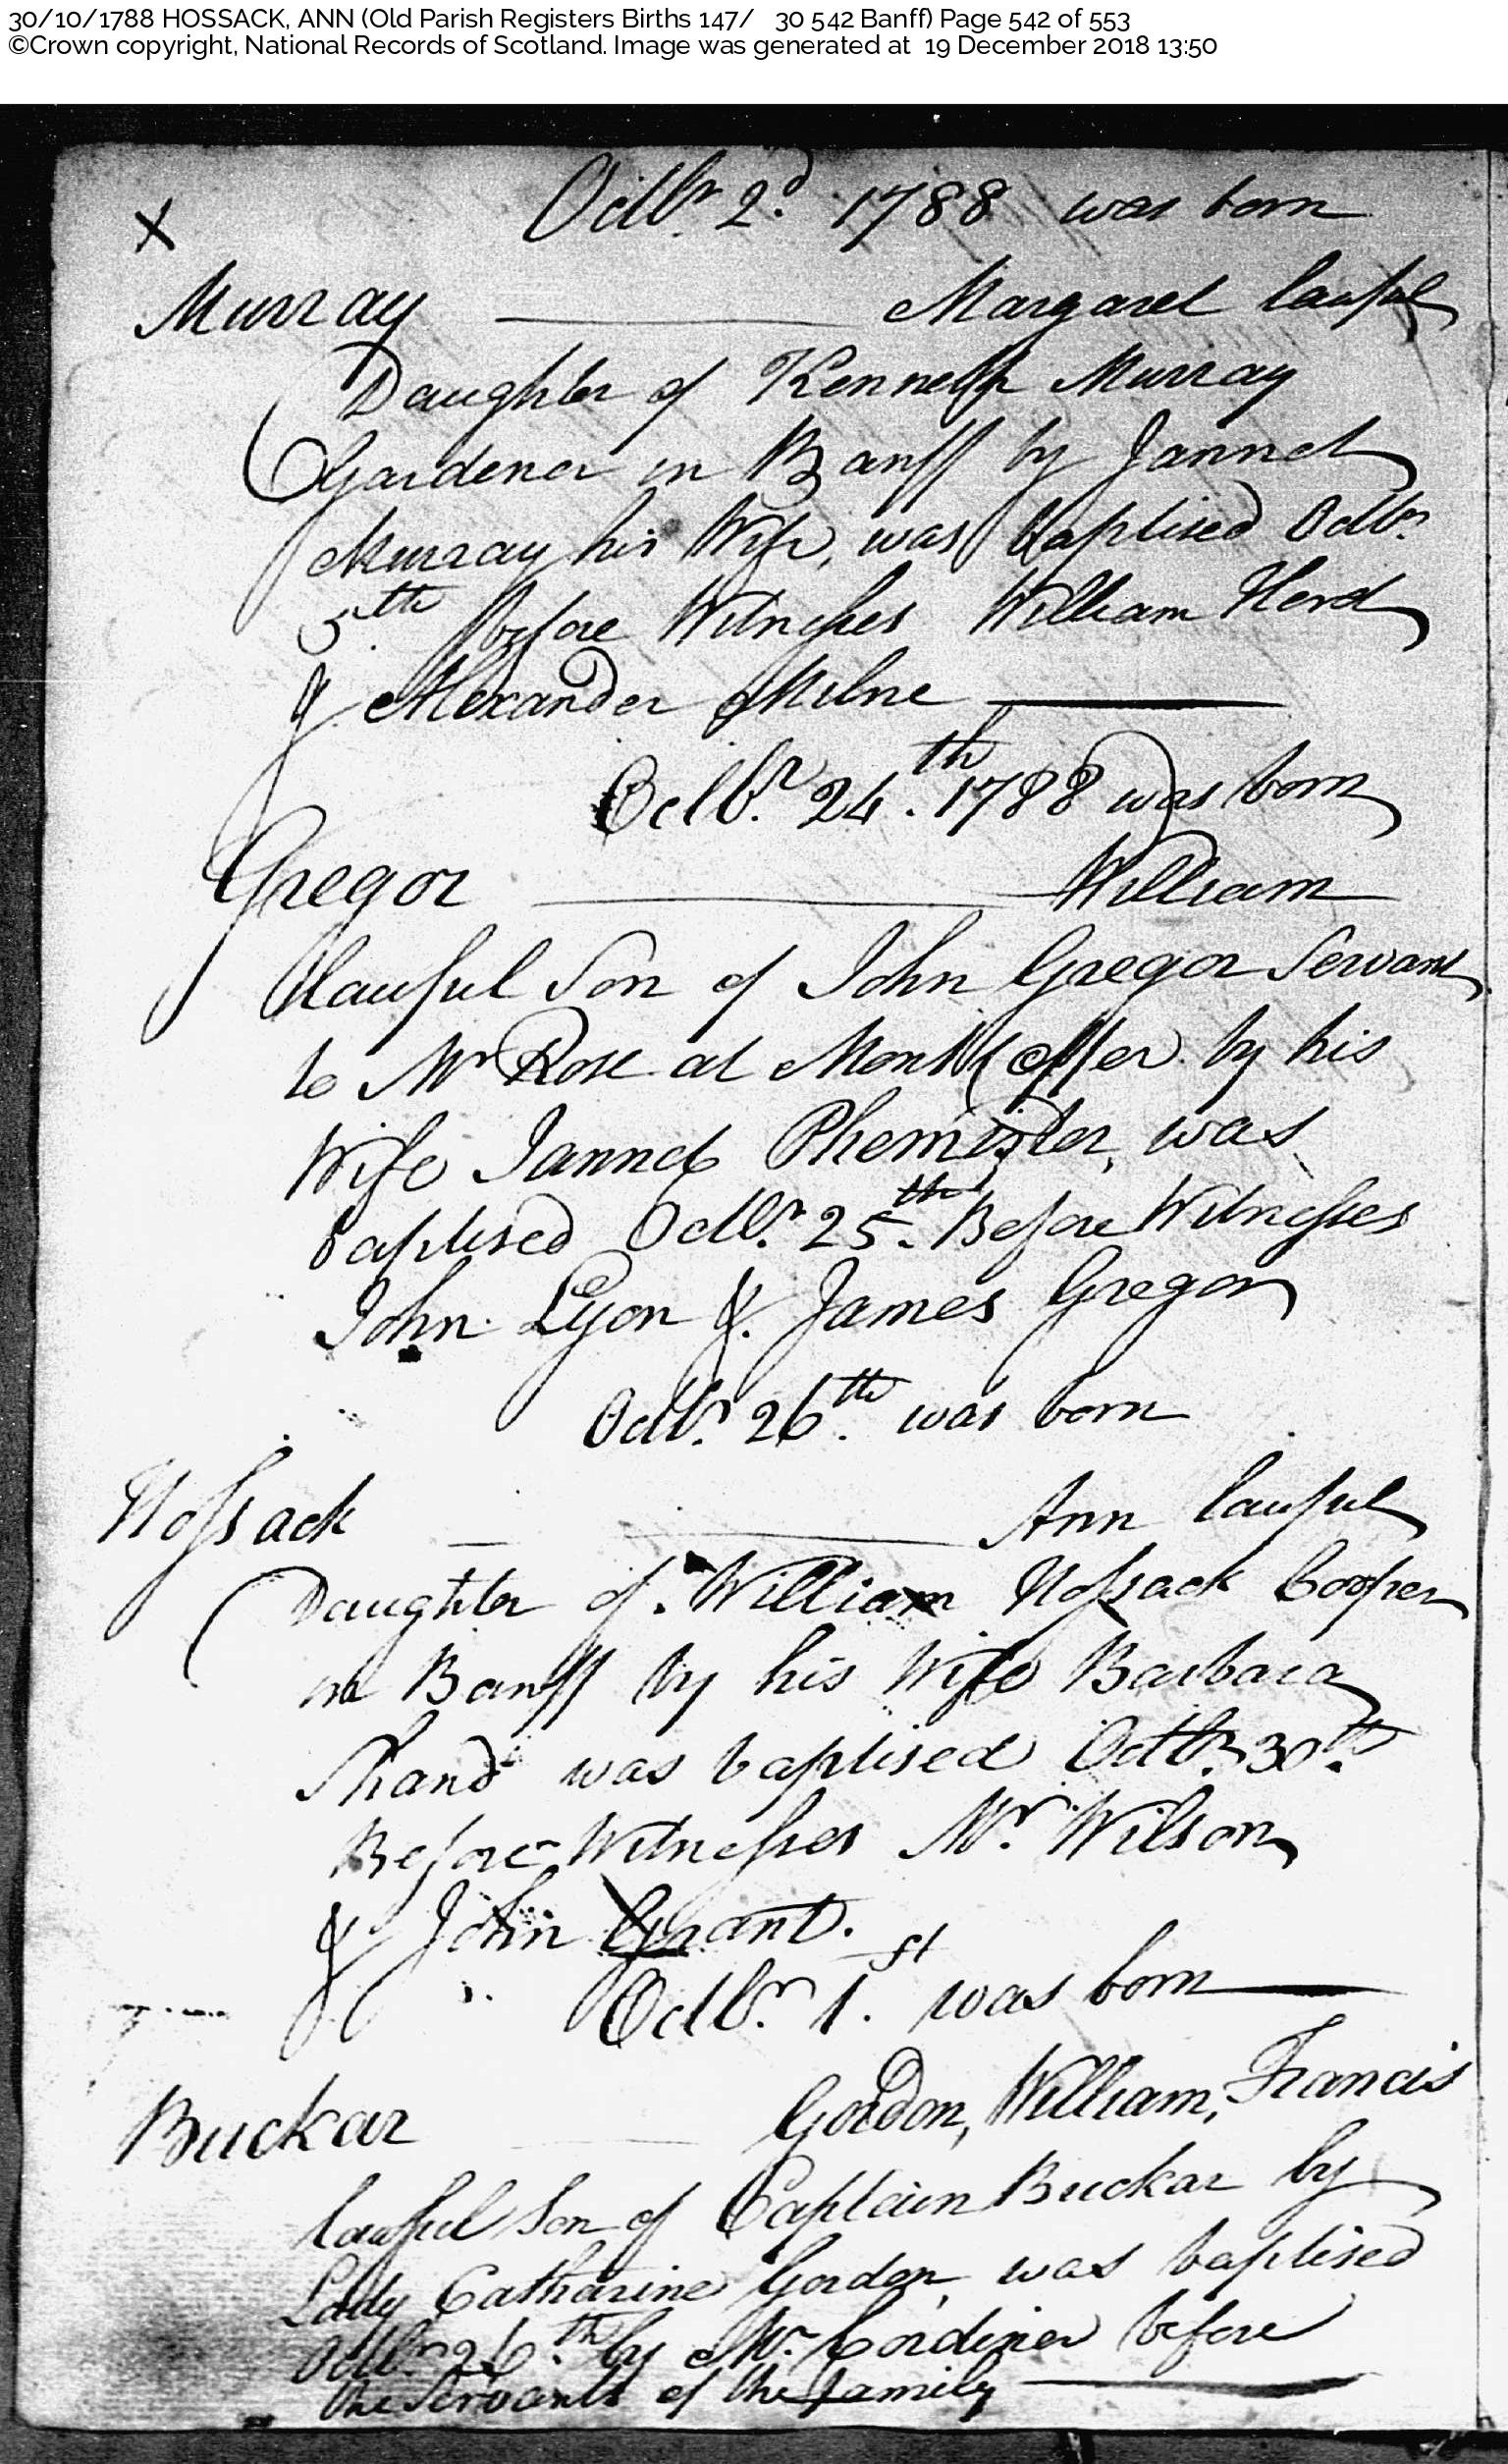 30/10/1788 HOSSACK, ANN (Old Parish Registers Births 147/ 30 542 Banff) Page 542 of 553
©Crown copyright, National Records of Scotland. Image was generated at 19 December 2018 13:50
Octbr. 2d. 1788 was born
Murray Margaret lawful
Daughter of Kenneth Murray
Gardener in Banff by Jannet
Murray his Wife, was baptised Octbr.
5th. before Witnesses William Herd
& Alexander Milne
Octbr. 24th. 1788 was born
Gregor William
lawful Son of John Gregor Servant
to Mr Rose at Montcoffer by his
Wife Jannet Phemister, was
baptised Octbr. 25th. Before Witnesses
John Lyon & James Gregor
Octbr. 26th. was born
Hossack Ann lawful
Daughter of William Hossack Cooper
in Banff by his Wife Barbara
Shand was baptised Octbr. 30th.
Before Witnesses Mr. Wilson
& John Grant.
Octbr. 1st. was born
Buckar Gordon, William, Francis
lawful Son of Captain Buckar by
Lady Catharine Gordon, was baptised
Octbr. 26th. by Mr. Cordiner before
the Servants of the family